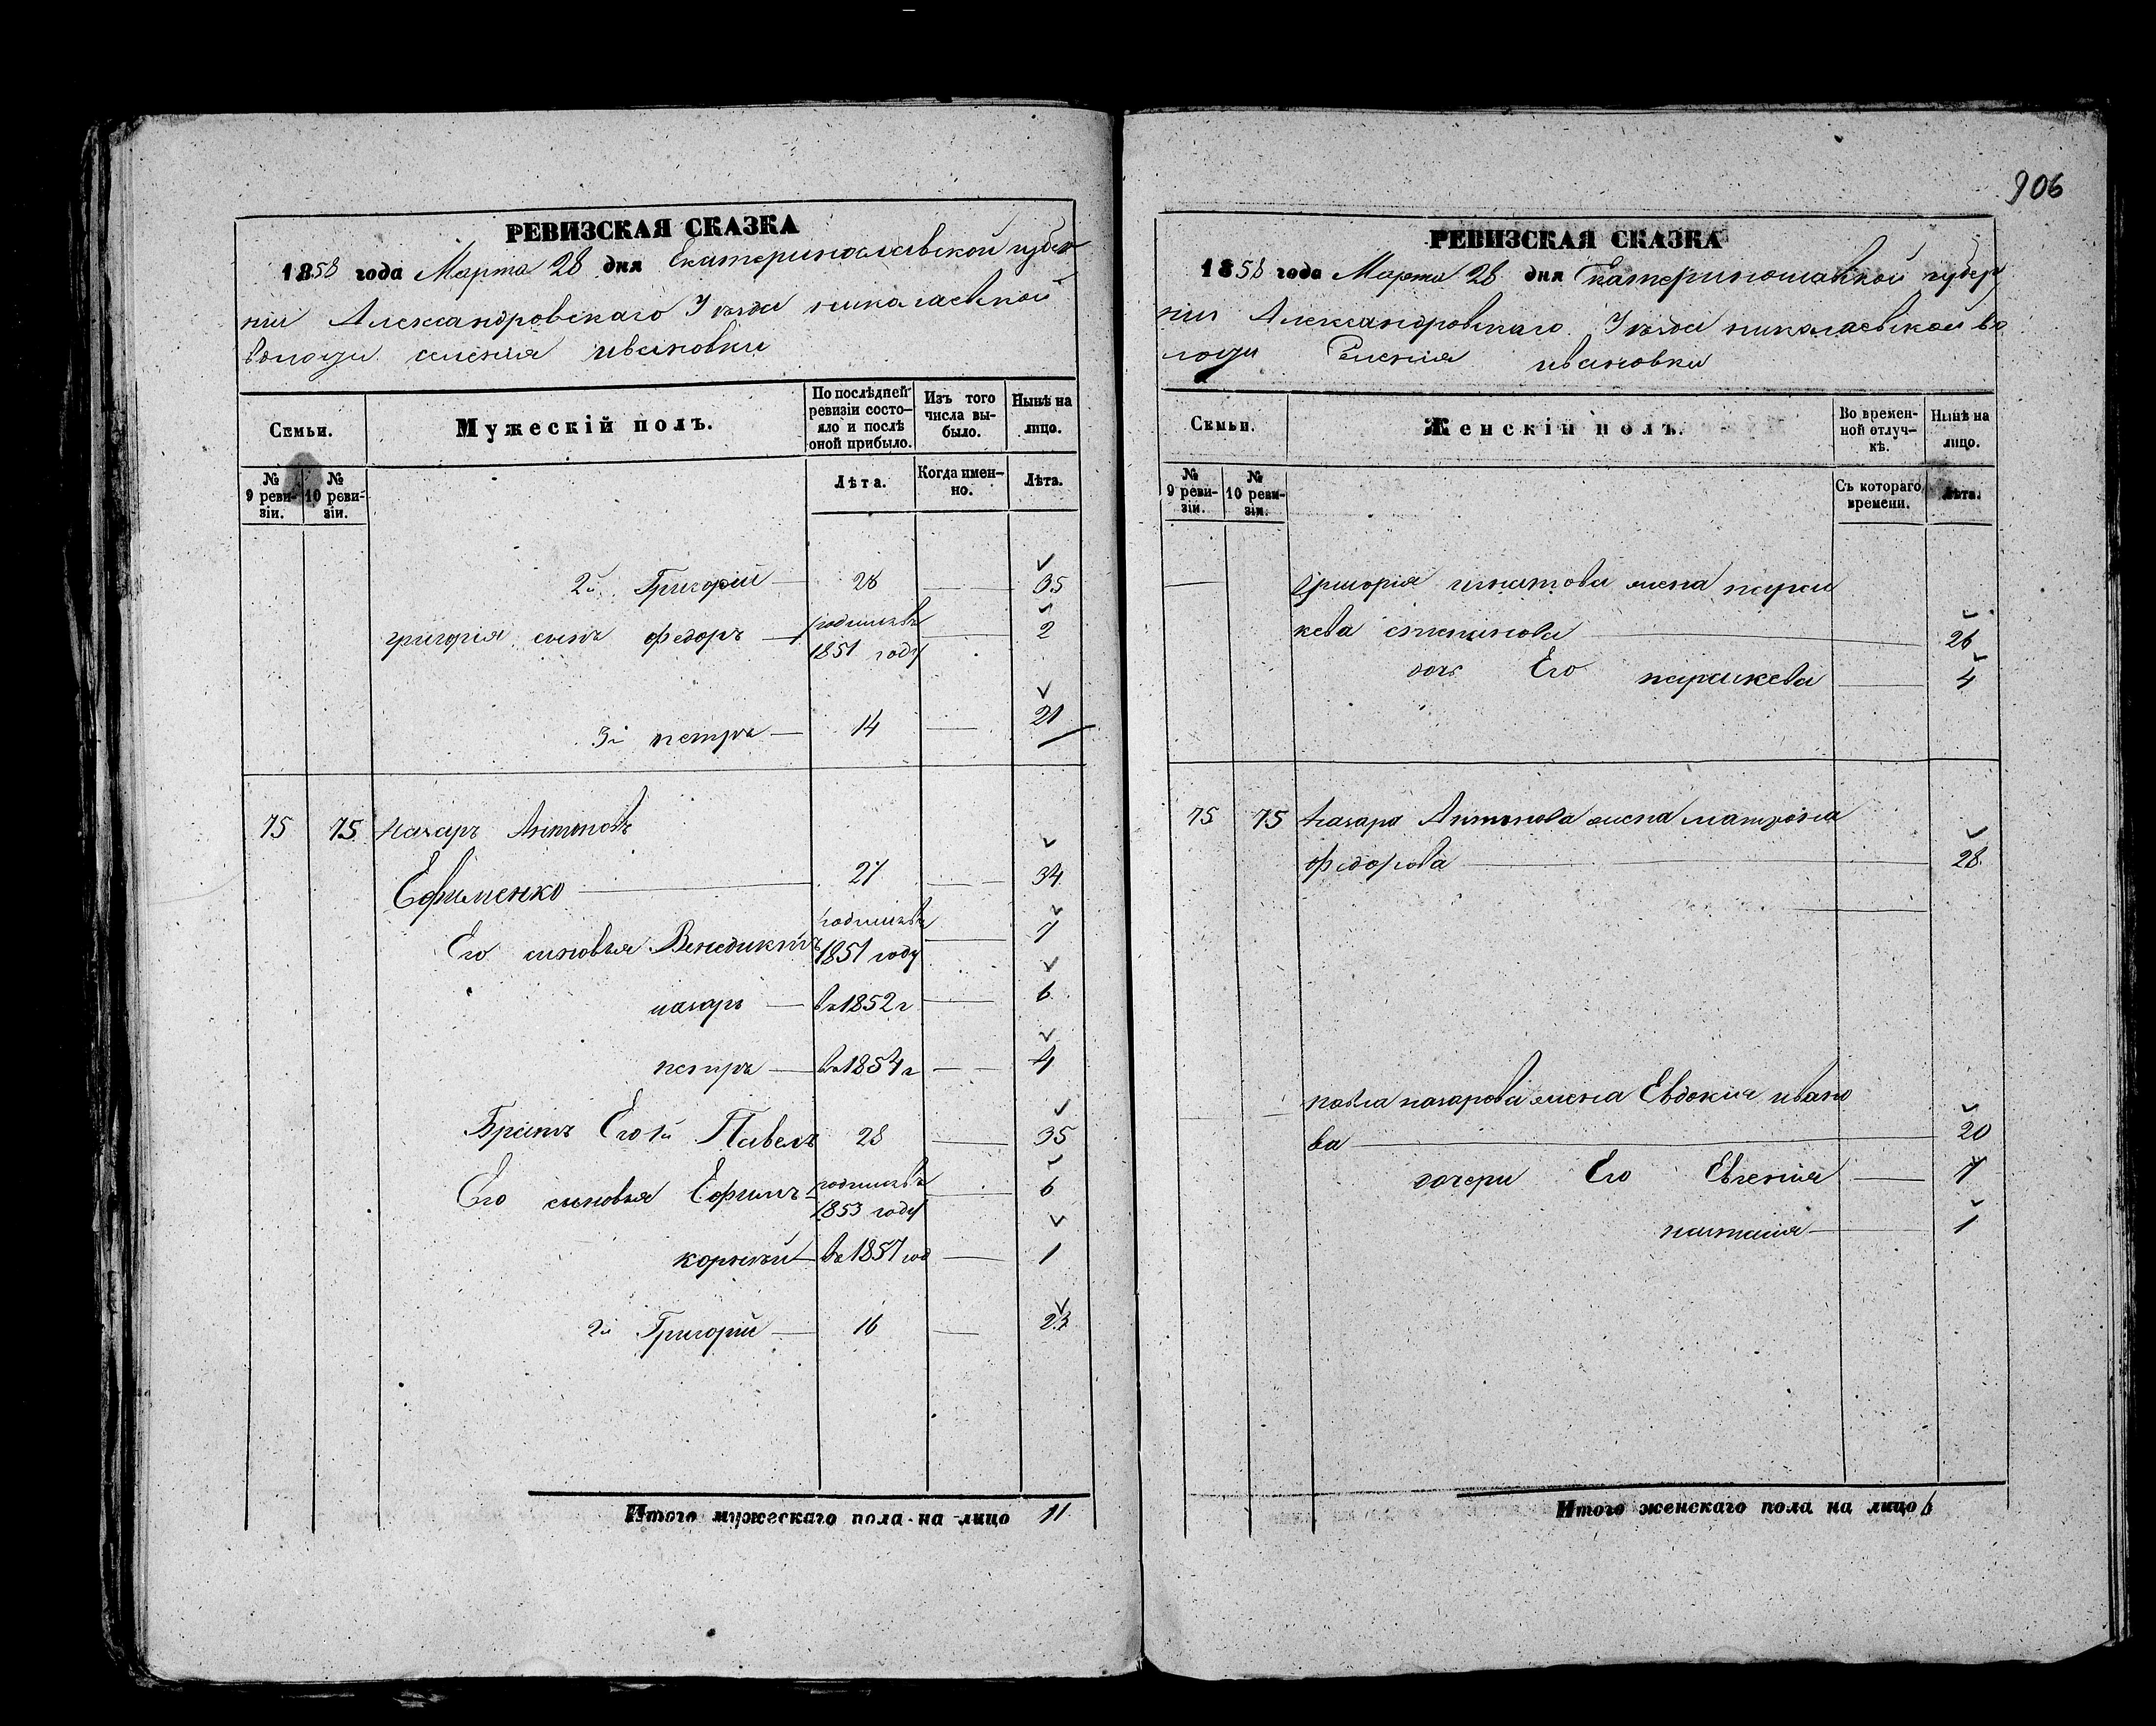 906
РЕВИЗСКАЯ СКАЗКА
1858 года Марта 28 дня Екатеринославской губер
ніи Александровскаго Уезда николаевской
волости селенія ивановки
Семьи.
Мужескій полъ.
По послѣдней ревизіи состо-яло и послѣ оной прибыло.
Изъ того числа вы-было.
Нынѣ на лицо.
№ 9 реви-зіи.
№ 10 реви-зіи.
Лѣта.
Когда имен-но.
Лѣта.
2й Григорій — 28 — 35
григорія сынъ федоръ — родился въ 1851 году — 2
3й петръ — 14 — 21
75 75 Назаръ Антоновъ
Ефименко — 27 — 34
Его сыновья Венедиктъ родился въ 1851 году — 7
назаръ — въ 1852 г — 6
петръ — въ 1854 г — 4
Братъ Его 1й Павелъ 28 — 35
Его сыновья Ефимъ родился въ 1853 году — 6
корнѣй — въ 1857 год — 1
2й Григорій — 16 — 23
Итого мужескаго пола на лицо 11
РЕВИЗСКАЯ СКАЗКА
1858 года Марта 28 дня Екатеринославской губер
ніи Александровскаго Уезда николаевской во
лости Селенія ивановки
Семьи.
Женскій полъ.
Во времен-ной отлуч-кѣ.
Нынѣ на лицо.
№ 9 реви-зіи.
№ 10 реви-зіи.
Съ котораго времени.
Лѣта.
Григорія игнатова жена парас
кева степанова — 26
дочь Его параскева — 4
75 75 Назара Антонова жена матрона
федорова — 28
павла назарова жена Евдокия ивано
ва — 20
дочери Его Евгенія — 7
наталия — 1
Итого женскаго пола на лицо 6